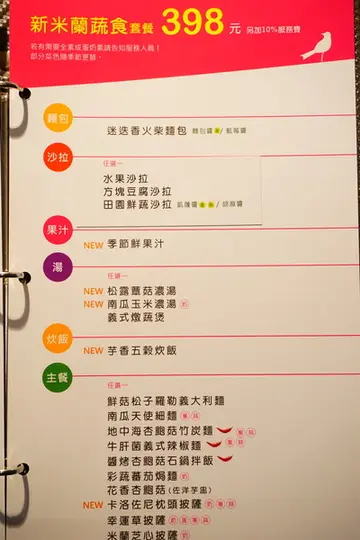 新米蘭蔬食套餐 398 元 另加10%服務費
若有需要全素或蛋奶素請告知服務人員！
部分菜色隨季節更替。
麵包
迷迭香火柴麵包
沙拉
任選一
水果沙拉
方塊豆腐沙拉
田園鮮蔬沙拉
果汁
NEW 季節鮮果汁
湯
任選一
NEW 松露蕈菇濃湯
NEW 南瓜玉米濃湯 奶
義式燉蔬煲
炊飯
NEW 芋香五穀炊飯
主餐
任選一
鮮菇松子羅勒義大利麵
南瓜天使細麵
地中海杏鮑菇竹炭麵
牛肝菌義式辣椒麵
醬烤杏鮑菇石鍋拌飯
彩蔬番茄焗麵 奶
花香杏鮑菇(佐洋芋盅)
NEW 卡洛佐尼枕頭披薩
幸運草披薩
米蘭芝心披薩